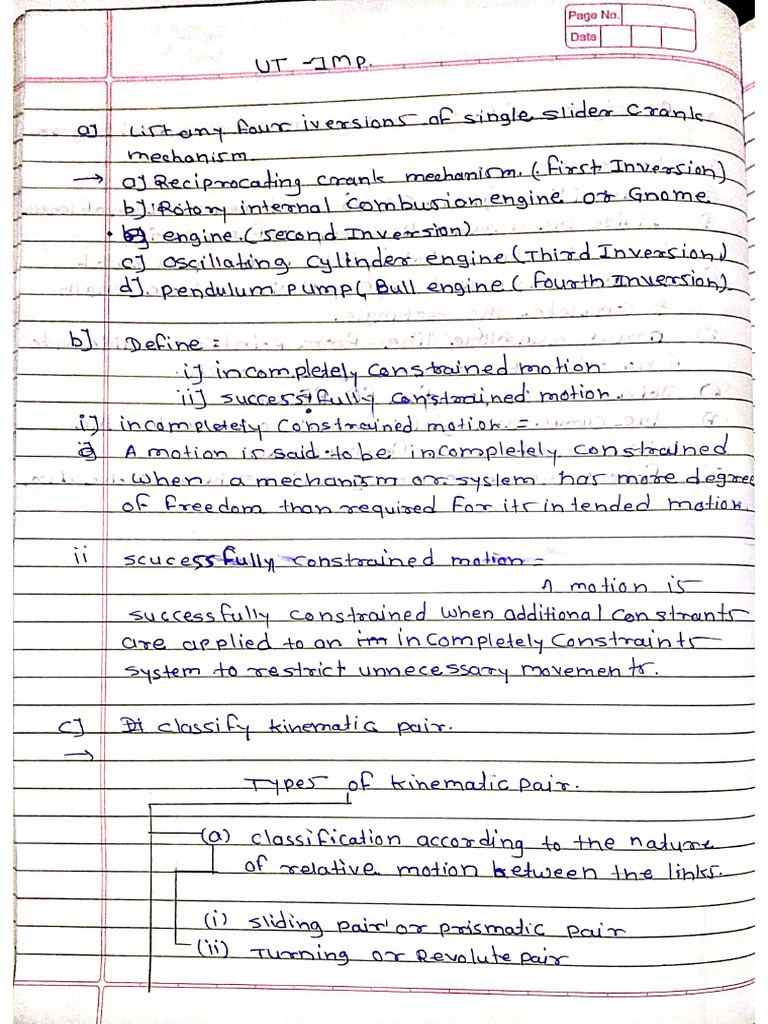 Page No.
Date
UT - IMP.
a] List any four iversions of single slider crank
mechanism.
→ a] Reciprocating crank mechanism. (first Inversion)
b] Rotory internal combusion engine or Gnome
engine. (second Inversion)
c] Oscillating cylinder engine (Third Inversion)
d]. Pendulum pump( Bull engine ( fourth Inversion)
b] Define =
i] incompletely constrained motion
ii] successfully constrained motion.
i] incompletely constrained motion =
A motion is said to be incompletely constrained
when a mechanism or system has more degree
of freedom than required for its intended motion.
ii scucessfully constrained motion =
A motion is
successfully constrained when additional constrants
are applied to an incompletely constraints
system to restrict unnecessary movements.
c] classify kinematic pair.
→
Types of kinematic pair.
(a) classification according to the nature
of relative motion between the links.
(i) sliding pair or prismatic pair
(ii) Turning or Revolute pair